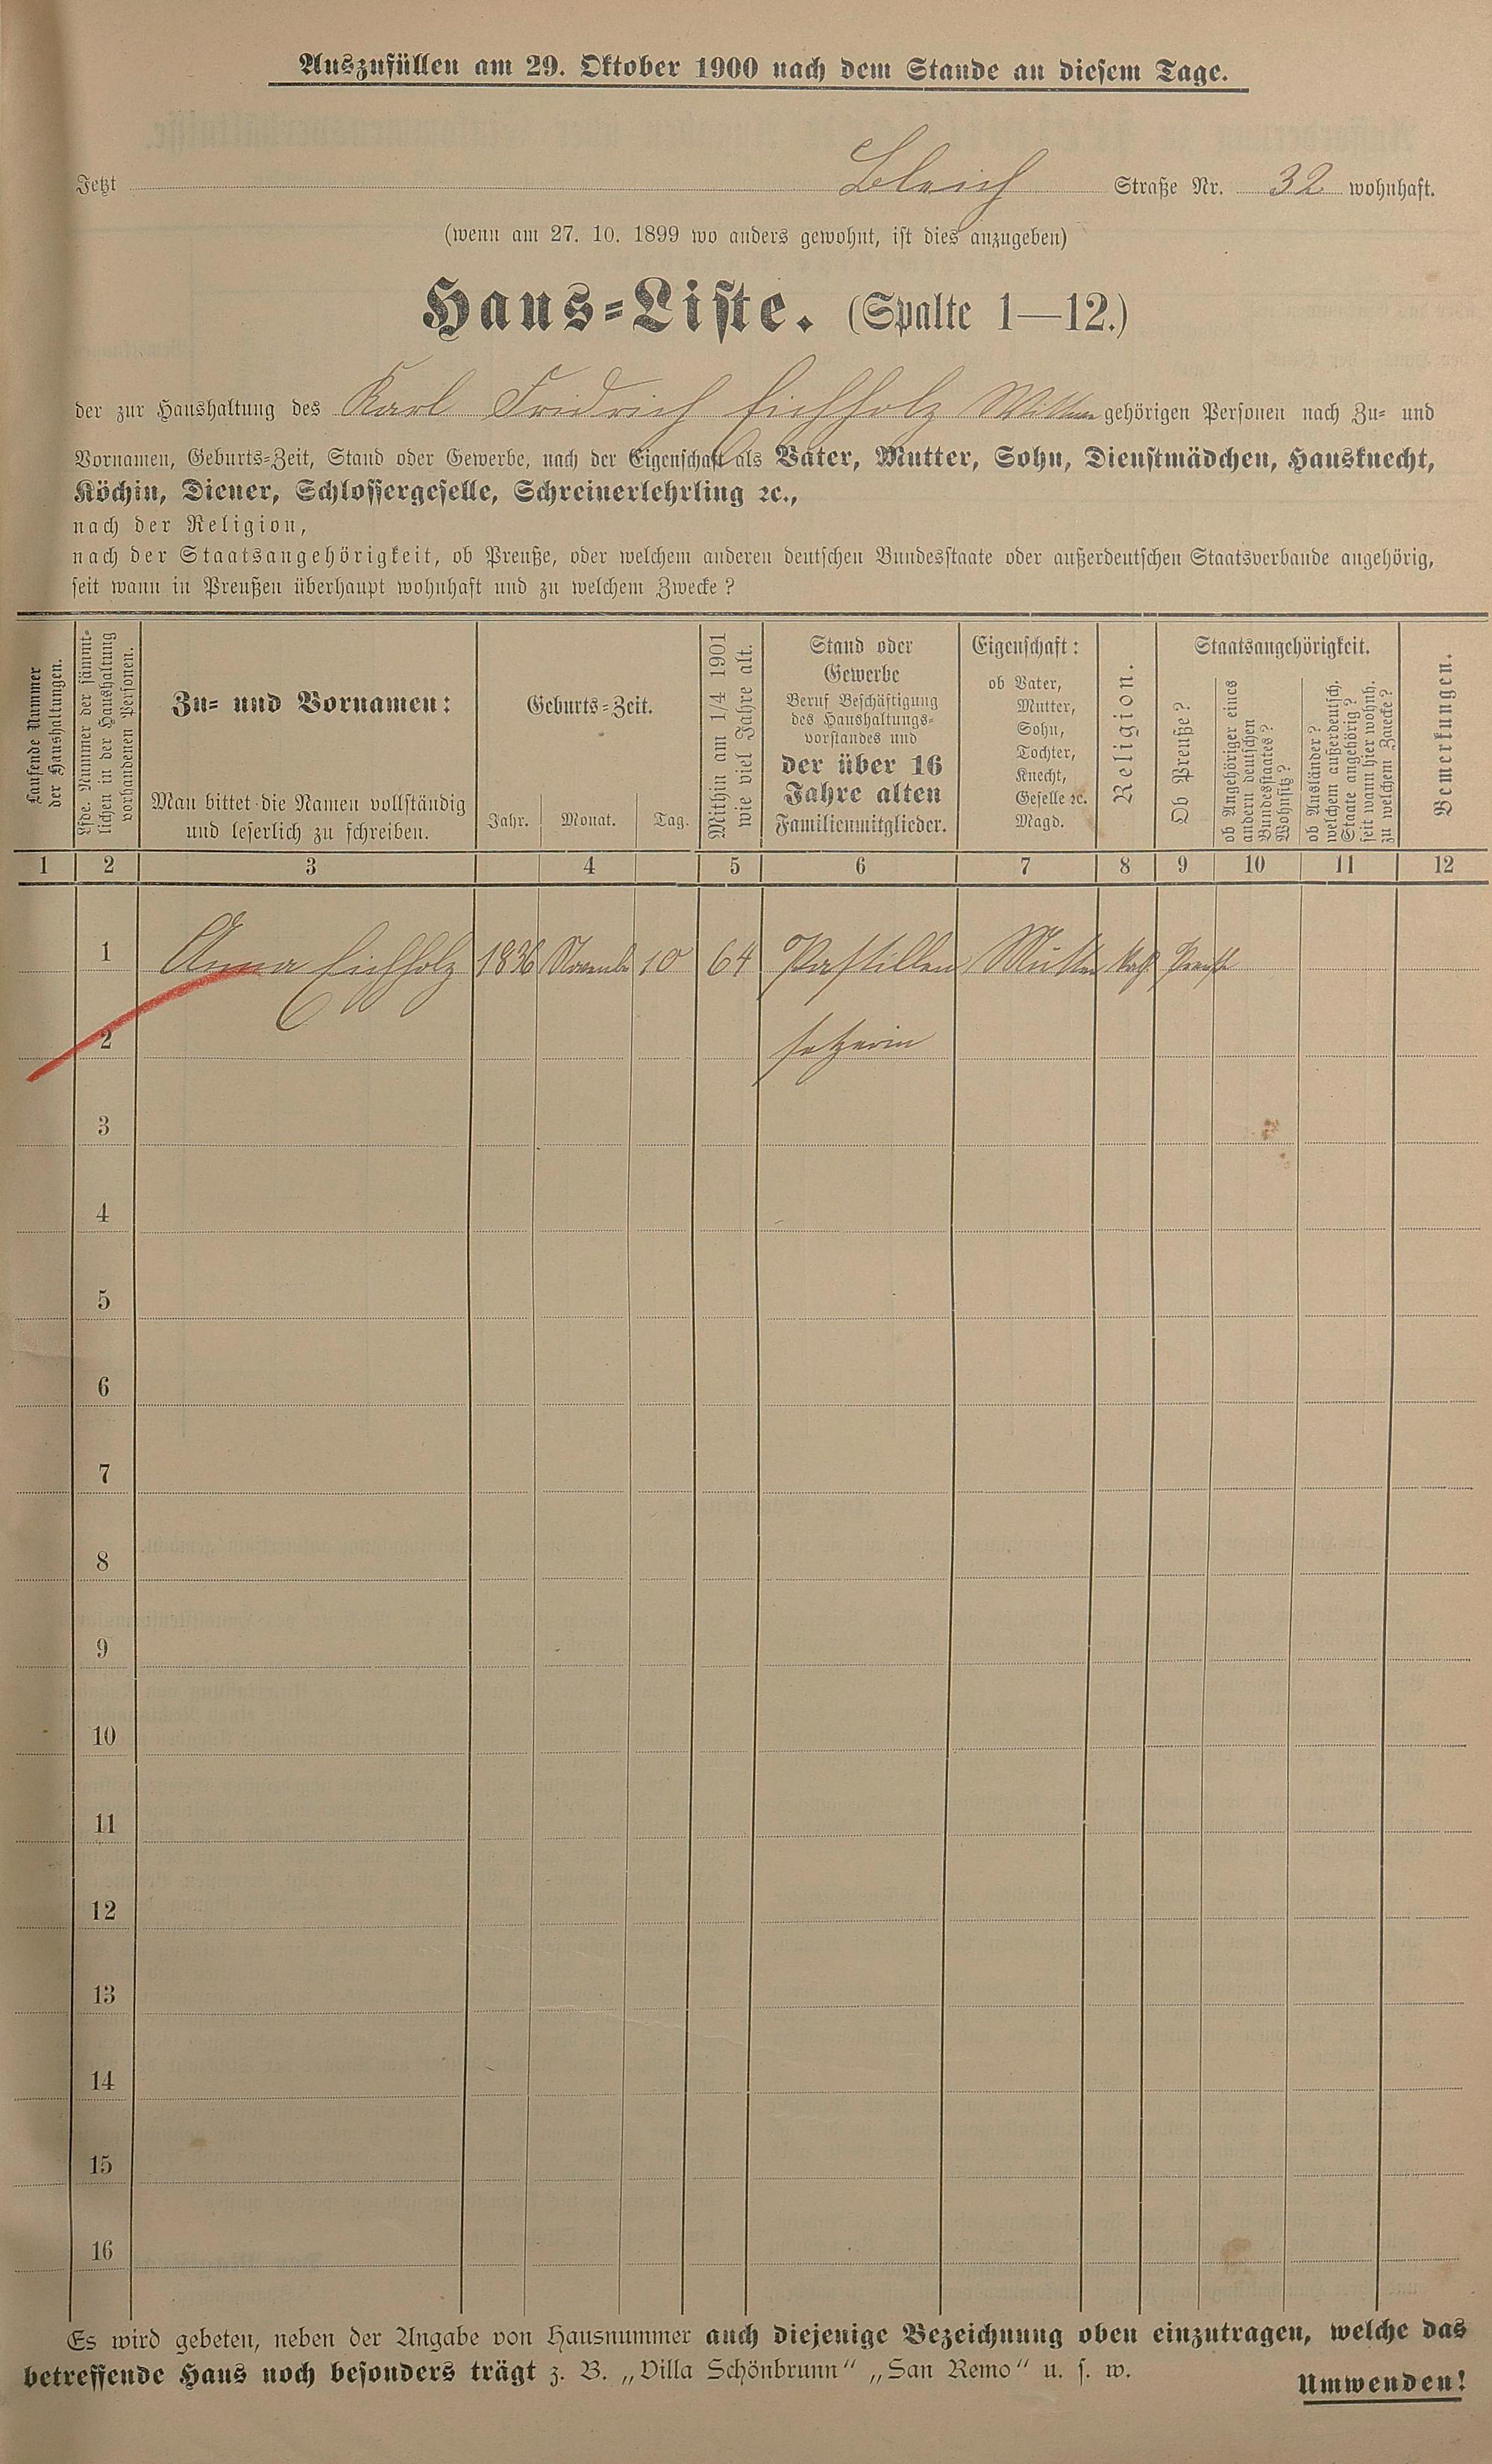 Auszufüllen am 29. Oktober 1900 nach dem Stande an diesem Tage.
Jetzt Bleich Straße Nr. 32 wohnhaft.
(wenn am 27. 10. 1899 wo anders gewohnt, ist dies anzugeben)
Haus-Liste. (Spalte 1—12.)
der zur Haushaltung des Karl Fridrich Eichholz gehörigen Personen nach Zu- und
Vornamen, Geburts-Zeit, Stand oder Gewerbe, nach der Eigenschaft als Vater, Mutter, Sohn, Dienstmädchen, Hausknecht,
Köchin, Diener, Schlossergeselle, Schreinerlehrling ꝛc.,
nach der Religion,
nach der Staatsangehörigkeit, ob Preuße, oder welchem anderen deutschen Bundesstaate oder außerdeutschen Staatsverbande angehörig,
seit wann in Preußen überhaupt wohnhaft und zu welchem Zwecke?
Laufende Nummer
der Haushaltungen.
Lfde. Nummer der sämmt-
lichen in der Haushaltung
vorhandenen Personen.
Zu- und Vornamen:
Man bittet die Namen vollständig
und leserlich zu schreiben.
Geburts-Zeit.
Jahr. Monat. Tag.
Mithin am 1/4 1901
wie viel Jahre alt.
Stand oder
Gewerbe
Beruf Beschäftigung
des Haushaltungs-
vorstandes und
der über 16
Jahre alten
Familienmitglieder.
Eigenschaft:
ob Vater,
Mutter,
Sohn,
Tochter,
Knecht,
Geselle ꝛc.
Magd.
Religion.
Staatsangehörigkeit.
Ob Preuße?
ob Angehöriger eines
andern deutschen
Bundesstaates?
Wohnsitz?
ob Ausländer?
welchem außerdeutsch.
Staate angehörig?
seit wann hier wohnh.
zu welchem Zwecke?
Bemerkungen.
1 2 3 4 5 6 7 8 9 10 11 12
1 Anna Eichholz 1836 November 10 64 Pastillen Mutter kath Preuße
2 setzerin
3
4
5
6
7
8
9
10
11
12
13
14
15
16
Es wird gebeten, neben der Angabe von Hausnummer auch diejenige Bezeichnung oben einzutragen, welche das
betreffende Haus noch besonders trägt z. B. „Villa Schönbrunn“ „San Remo“ u. s. w.
Umwenden!